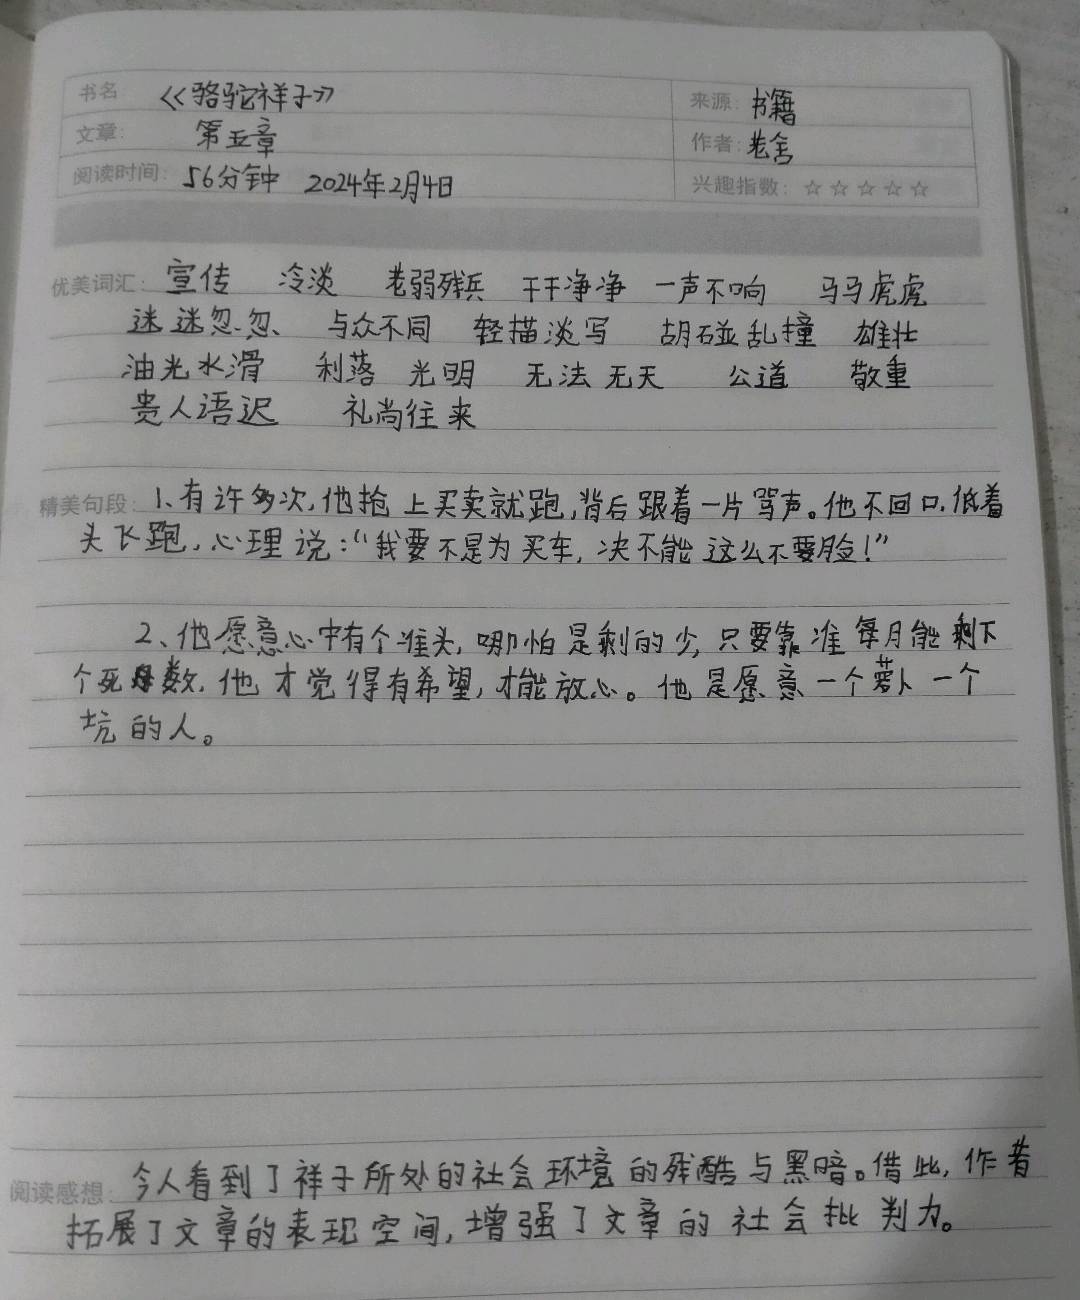 书名 《骆驼祥子》 来源: 书籍
文章: 第五章 作者: 老舍
阅读时间: 56分钟 2024年2月4日 兴趣指数: ☆☆☆☆☆
优美词汇: 宣传 冷淡 老弱残兵 干干净净 一声不响 马马虎虎
迷迷忽忽 与众不同 轻描淡写 胡碰乱撞 雄壮
油光水滑 利落 光明 无法无天 公道 敬重
贵人语迟 礼尚往来
精美句段: 1、有许多次,他抢上买卖就跑,背后跟着一片骂声。他不回口,低着
头飞跑,心理说:“我要不是为买车,决不能这么不要脸!”
2、他愿意心中有个准头,哪怕是剩的少,只要靠准每月能剩下
个死数,他才觉得有希望,才能放心。他是愿意一个萝卜一个
坑的人。
阅读感想: 令人看到了祥子所处的社会环境的残酷与黑暗。借此,作者
拓展了文章的表现空间,增强了文章的社会批判力。